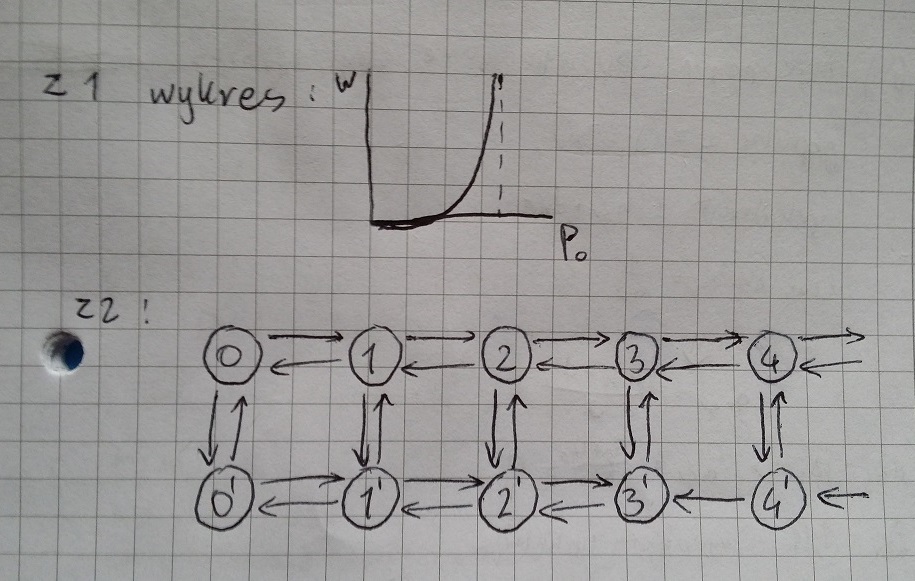 z 1 wykres : W
P₀
z2 :
0 1 2 3 4
0' 1' 2' 3' 4'